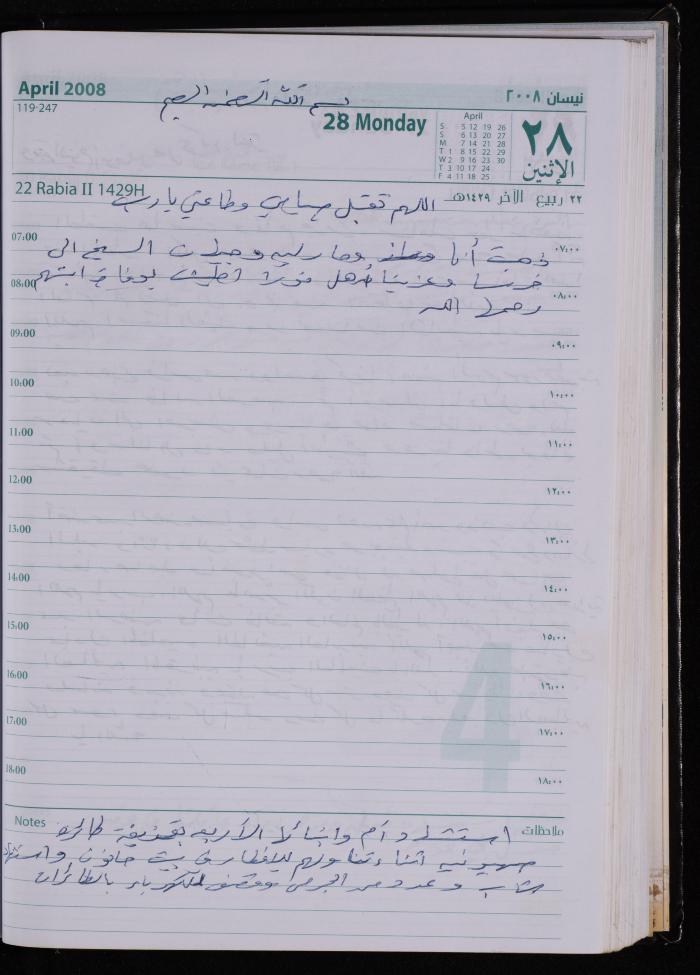 April 2008
نيسان ٢٠٠٨
بسم الله الرحمن الرحيم
119-247
28 Monday
April
S 5 12 19 26
S 6 13 20 27
M 7 14 21 28
T 1 8 15 22 29
W 2 9 16 23 30
T 3 10 17 24
F 4 11 18 25
٢٨
الإثنين
22 Rabia II 1429H
٢٢ ربيع الآخر ١٤٢٩هـ
اللهم تقبل صيامي وطاعتي يا رب
07:00 ٠٧:٠٠
ذهبت أنا
الشيخ الى
08:00 ٠٨:٠٠
وعزينا أهل بوفاة ابنتهم
رحمها الله
09:00 ٠٩:٠٠
10:00 ١٠:٠٠
11:00 ١١:٠٠
12:00 ١٢:٠٠
13:00 ١٣:٠٠
14:00 ١٤:٠٠
15:00 ١٥:٠٠
16:00 ١٦:٠٠
17:00 ١٧:٠٠
18:00 ١٨:٠٠
4
Notes
ملاحظات
استشهاد أم وابنائها الأربعة بقذيفة
صهيونية أثناء تناولهم للافطار في بيت حانون واستشهاد
شاب وعدد من الجرحى بالطائرات